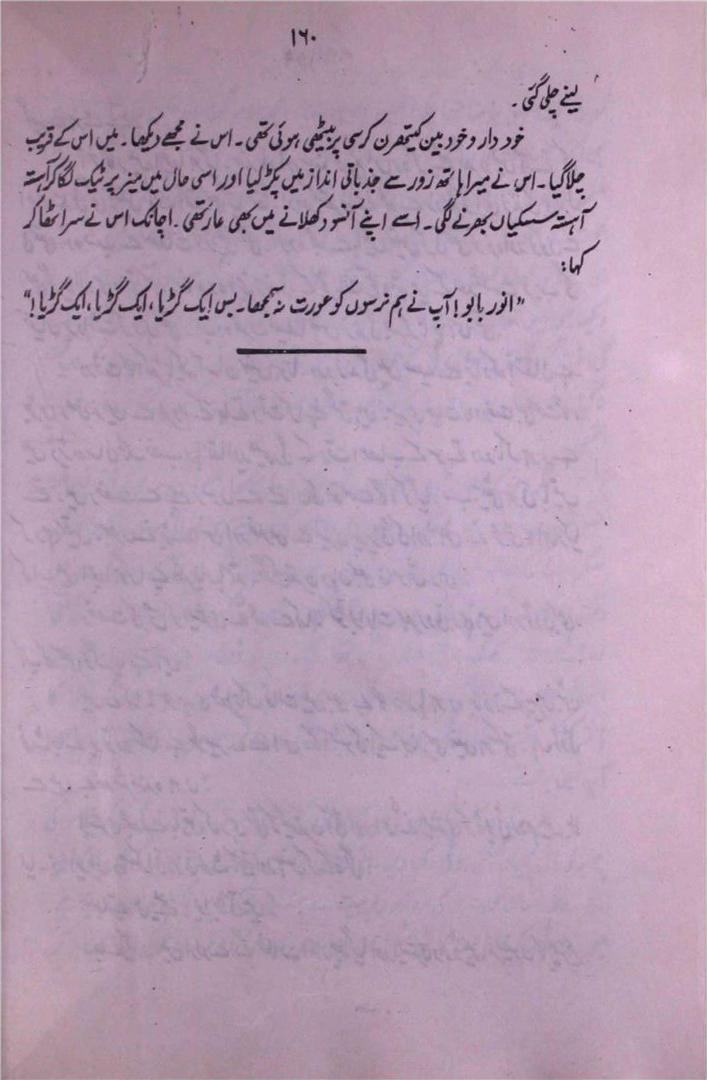 ۱۶۰
لینے چلی گئی۔
خود دار و خود بین کیتھرن کرسی پر بیٹھی ہوئی تھی۔ اس نے مجھے دیکھا۔ میں اس کے قریب
چلا گیا۔ اس نے میرا ہاتھ زور سے جذباتی انداز میں پکڑ لیا اور اسی حال میں میز پر ٹیک لگا کر آہستہ
آہستہ سسکیاں بھرنے لگی۔ اسے اپنے آنسو دکھلانے میں بھی عار تھی۔ اچانک اس نے سر اٹھا کر
کہا:
"انور بابو! آپ نے ہم نرسوں کو عورت نہ سمجھا۔ بس ایک گڑیا، ایک گڑیا، ایک گڑیا!"